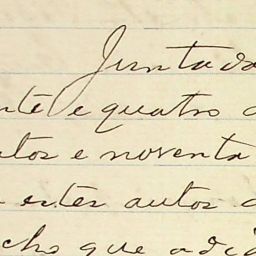 Juntada
nte e quatro d
ntos e noventa
a estes autos
cho que adia